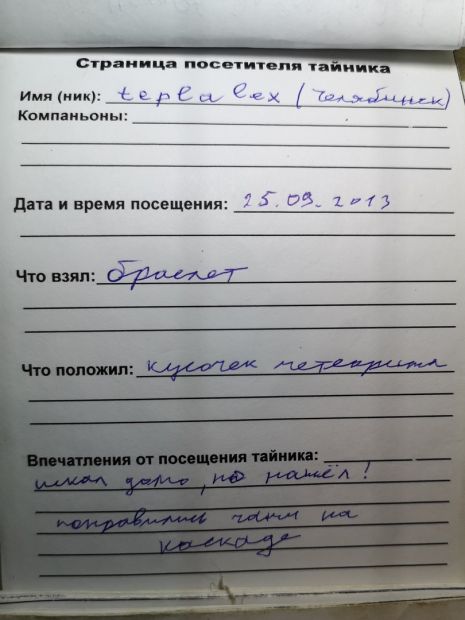 Страница посетителя тайника
Имя (ник): teplalex (Челябинск)
Компаньоны:
Дата и время посещения: 25.09.2013
Что взял: браслет
Что положил: кусочек метеорита
Впечатления от посещения тайника:
искал долго, но нашёл!
понравились на
каскаде